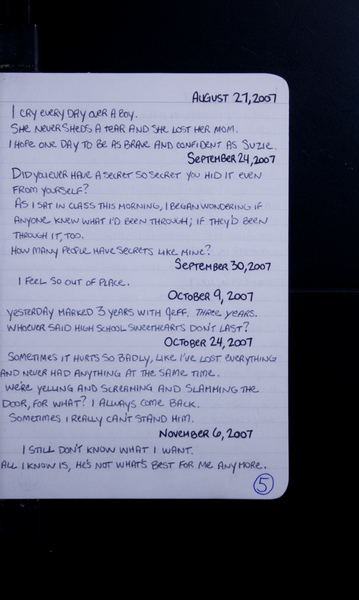 AUGUST 27, 2007
I CRY EVERY DAY OVER A BOY.
SHE NEVER SHEDS A TEAR AND SHE LOST HER MOM.
I HOPE ONE DAY TO BE AS BRAVE AND CONFIDENT AS SUZIE.
SEPTEMBER 24, 2007
DID YOU EVER HAVE A SECRET SO SECRET YOU HID IT EVEN
FROM YOURSELF?
AS I SAT IN CLASS THIS MORNING, I BEGAN WONDERING IF
ANYONE KNEW WHAT I'D BEEN THROUGH; IF THEY'D BEEN
THROUGH IT, TOO.
HOW MANY PEOPLE HAVE SECRETS LIKE MINE?
SEPTEMBER 30, 2007
I FEEL SO OUT OF PLACE.
OCTOBER 9, 2007
YESTERDAY MARKED 3 YEARS WITH JEFF. THREE YEARS.
WHOEVER SAID HIGH SCHOOL SWEETHEARTS DON'T LAST?
OCTOBER 24, 2007
SOMETIMES IT HURTS SO BADLY, LIKE I'VE LOST EVERYTHING
AND NEVER HAD ANYTHING AT THE SAME TIME.
WE'RE YELLING AND SCREAMING AND SLAMMING THE
DOOR, FOR WHAT? I ALWAYS COME BACK.
SOMETIMES I REALLY CAN'T STAND HIM.
NOVEMBER 6, 2007
I STILL DON'T KNOW WHAT I WANT.
ALL I KNOW IS, HE'S NOT WHAT'S BEST FOR ME ANYMORE.
5